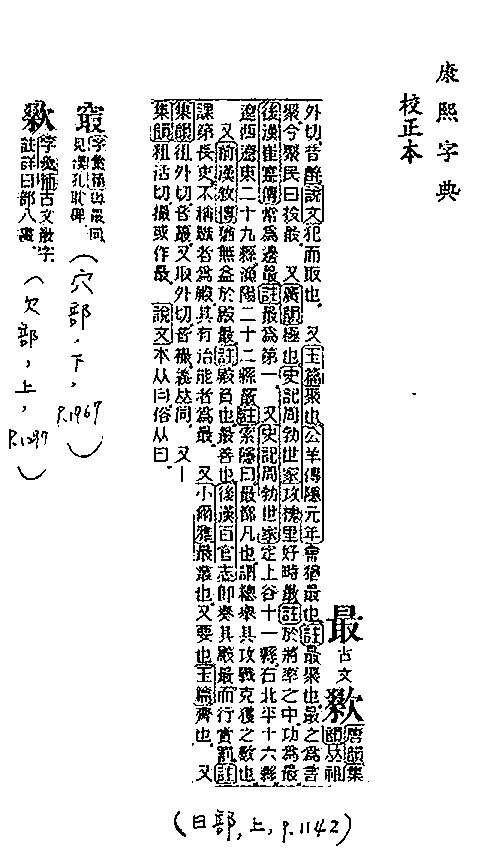 康熙字典
校正本
最
古文
唐韻集
韻𠀤祖
外切音醉說文犯而取也 又玉篇聚也公羊傳隱元年會猶最也註最聚也最之爲言
聚今聚民曰投最 又廣韻極也史記周勃世家攻槐里好畤最註於將率之中功爲最
後漢崔寔傳常爲邊最註最爲第一 又史記周勃世家定上谷十一縣右北平十六縣
遼西遼東二十九縣漁陽二十二縣最註索隱曰最都凡也謂總舉其攻戰克獲之數也
又前漢敘傳猶無益於殿最註殿負也最善也後漢百官志卽奏其殿最而行賞罰註
課第長吏不稱職者爲殿其有治能者爲最 又小爾雅最叢也 又要也玉篇齊也 又
集韻祖外切音蕞又取外切音襊義𠀤同 又一
集韻祖活切撮或作最 說文本从曰俗从曰
(日部,上,P.1142)
字彙補與最同
見漢孔耽碑
(穴部,下,P.1969)
字彙補古文最字
註詳曰部八畫
(欠部,上,P.1297)